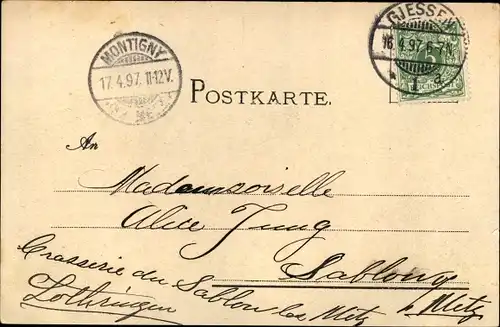 GIESSEN
16.4.97. 6-7N.
* 1 a
MONTIGNY
17.4.97. 11-12V.
5
POSTKARTE.
An
Mademoiselle
Alice Jung
Sablony
b. Metz
Brasserie du Sablon les Metz
Lothringen